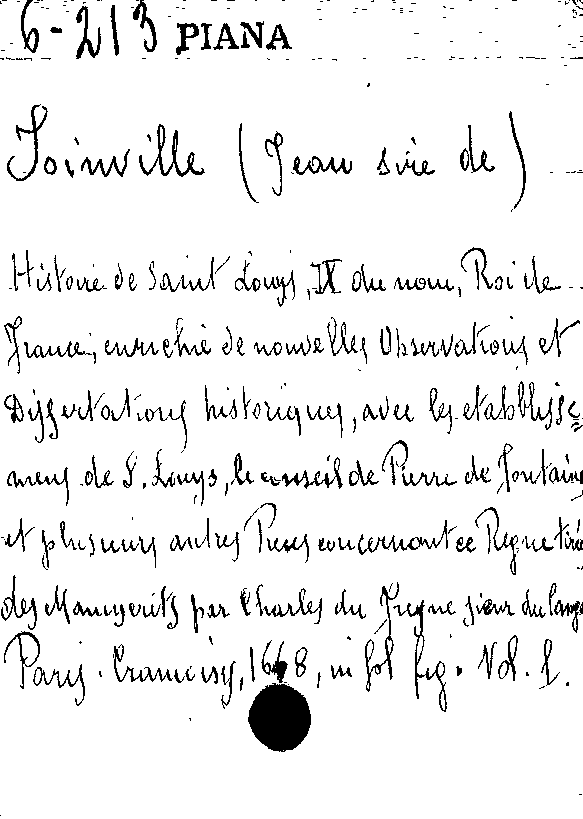 6-213 PIANA
Joinville (Jean sire de)
Histoire de Saint Louys, IX du nom, Roi de
France, enrichie de nouvelles Observations et
Dissertations historiques, avec les etablisse=
mens de S. Louys, le conseil de Pierre de Fontaines
et plusieurs autres Pieces concernant ce Regne tirées
des Manuscrits par Charles du Fresne sieur du Cange
Paris. Cramoisy, 1668, in fol fig. Vol. 1.